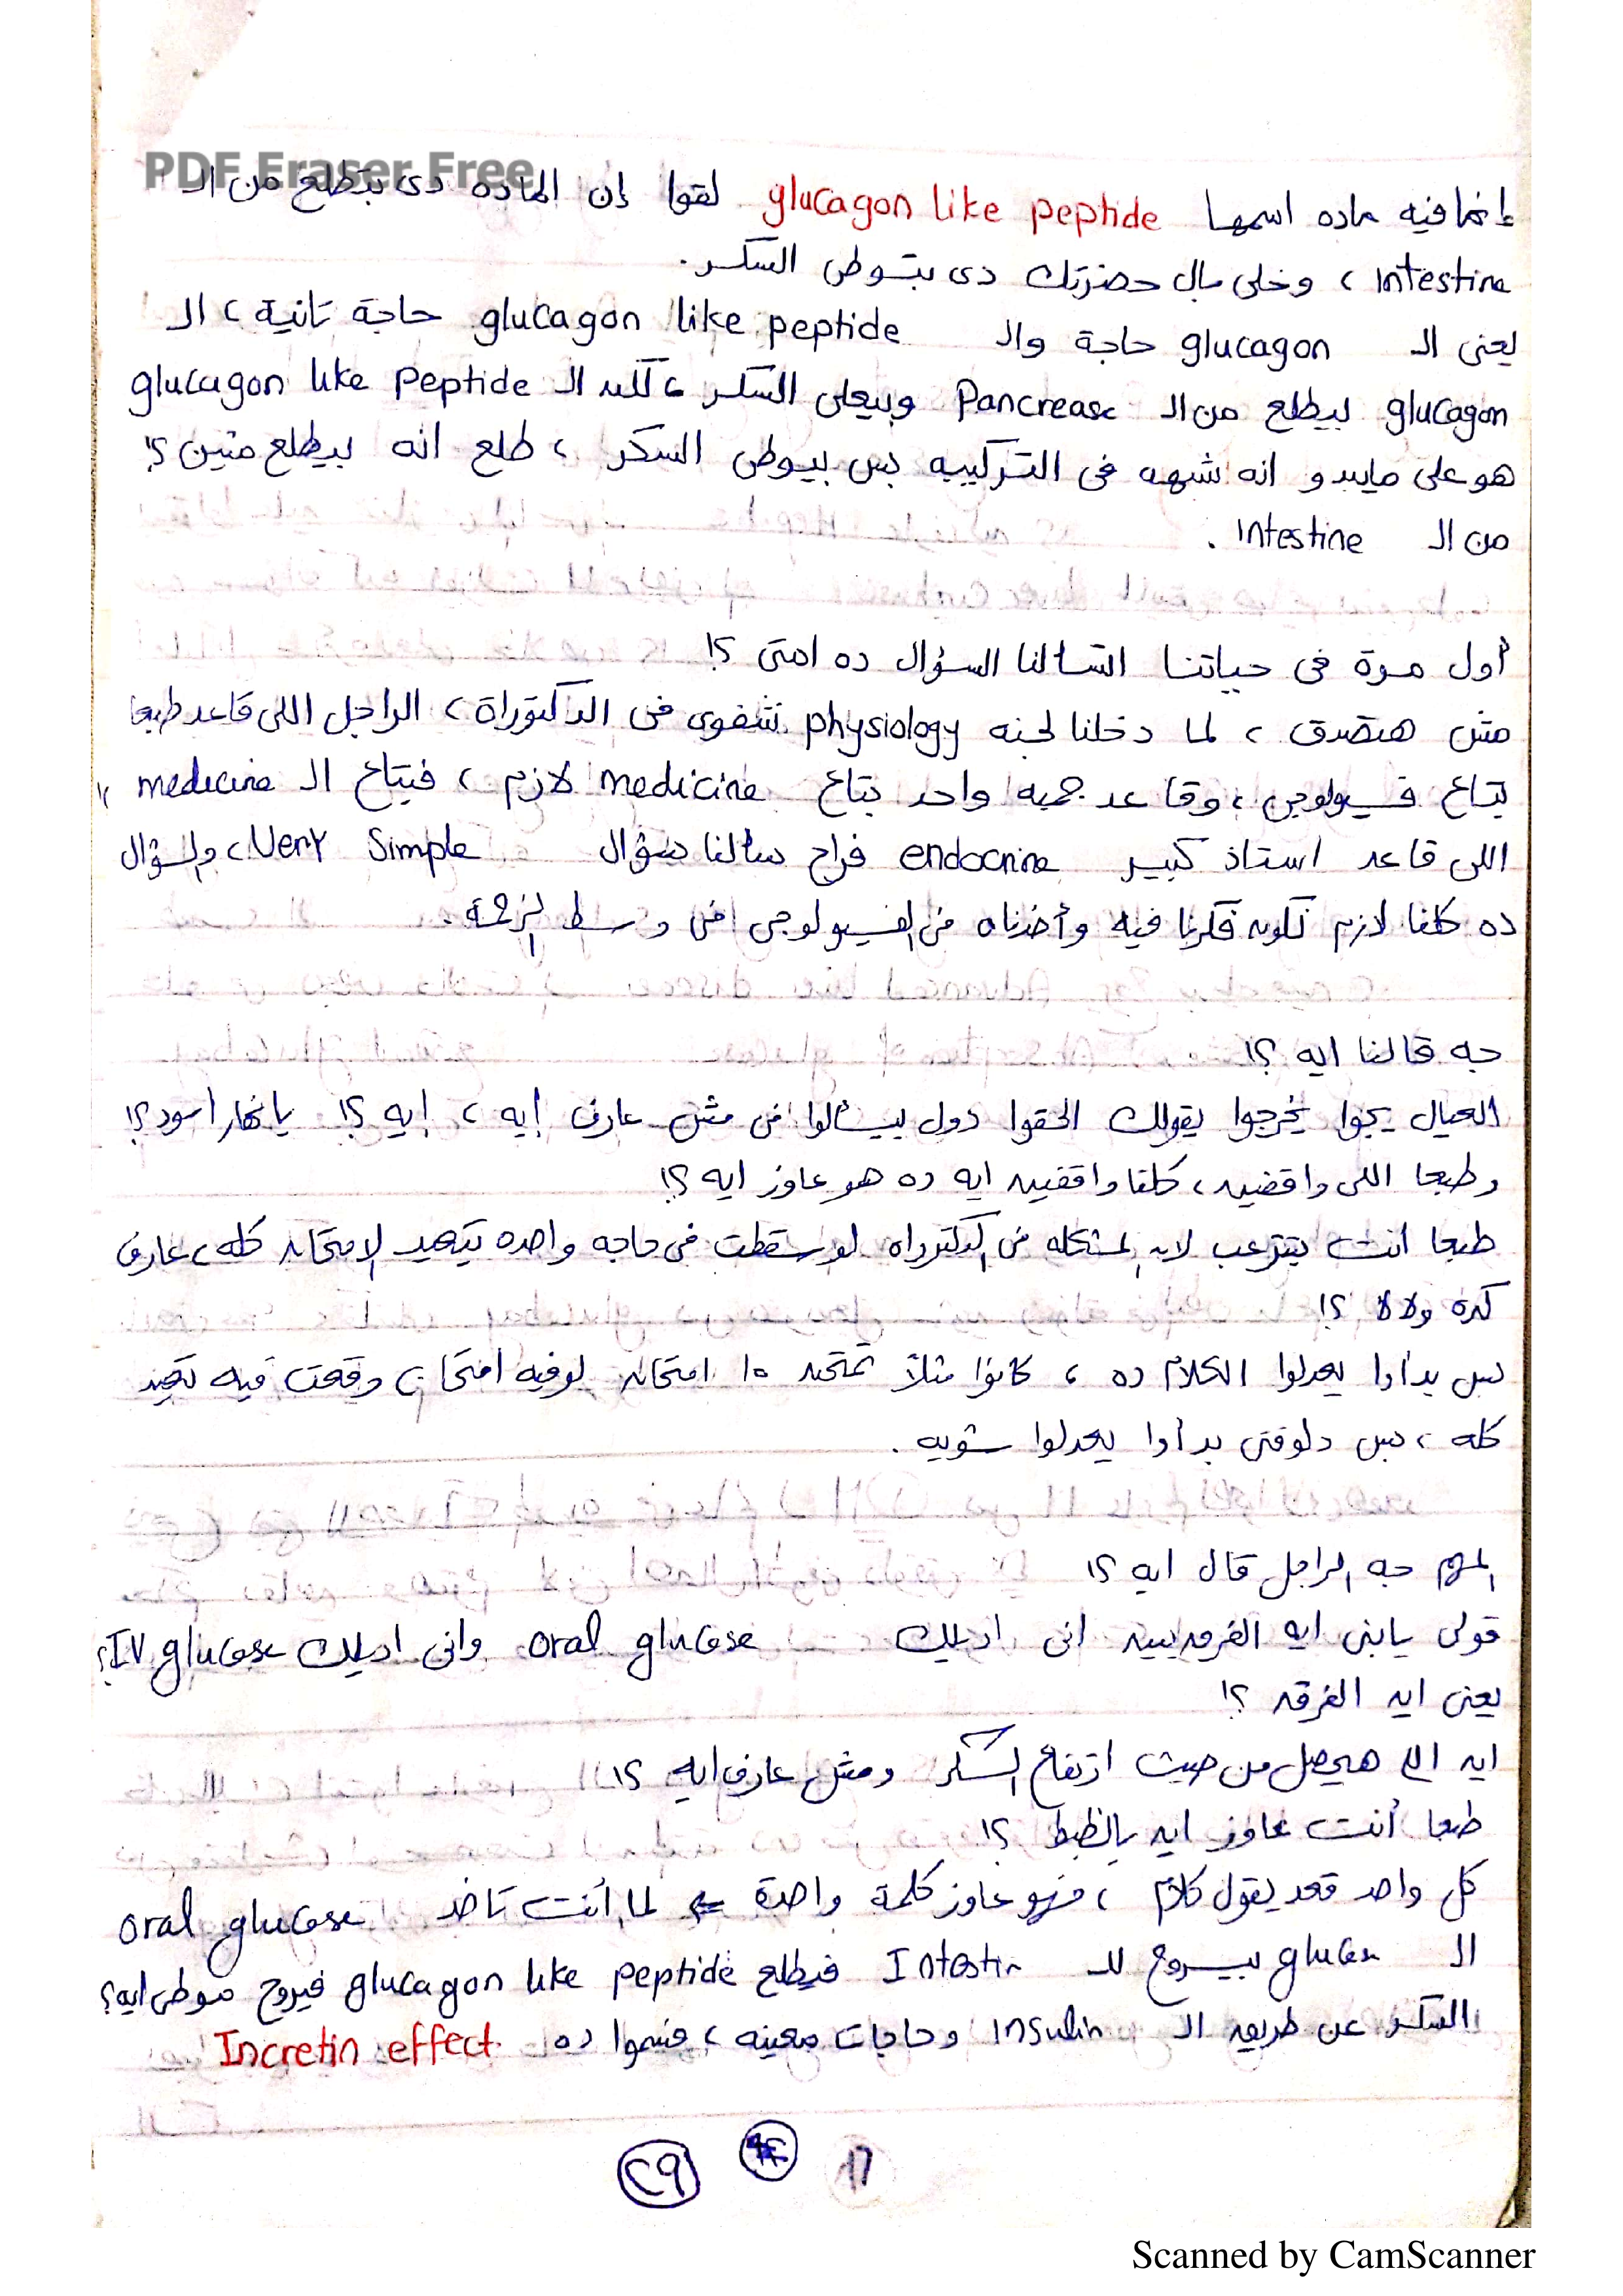 PDF Eraser Free
إنما فيه ماده اسمها glucagon like peptide لقوا إن الماده دى بتطلع من الـ
Intestine ، وخلى بال حضرتك دى بتوطى السكر .
يعنى الـ glucagon حاجة والـ glucagon like peptide حاجة تانية ، الـ
glucagon بيطلع من الـ Pancrease وبيعلى السكر ، لكن الـ glucagon like peptide
هو على مايبدو انه شبهه فى التركيبه بس بيوطى السكر ، طلع انه بيطلع منين ؟!
من الـ Intestine .
أول مرة فى حياتنا اتسالنا السؤال ده امتى ؟!
مش هتصدق ، لما دخلنا لجنه physiology شفوى فى الدكتوراة ، الراجل اللى قاعد طبعا
بتاع فسيولوجى ، وقاعد جمبه واحد بتاع medicine لازم ، فبتاع الـ medicine "
اللى قاعد استاذ كبير endocrine فراح سألنا سؤال Very Simple ، والسؤال
ده كلنا لازم نكون فكرنا فيه وأخدناه فى الفسيولوجى فى وسط الزحمة .
جه قالنا ايه ؟!
العيال يجوا يخرجوا يقولك الحقوا دول بيسألوا فى مش عارف إيه ، إيه ؟! يا نهار اسود ؟!
وطبعا اللى واقفين ، كلنا واقفين ايه ده هو عاوز ايه ؟!
طبعا انت بتترعب لان المشكله فى الدكتوراه لو سقطت فى حاجه واحده بتعيد الامتحان كله ، عارف
كده ولا لا ؟!
بس بدأوا يعدلوا الكلام ده ، كانوا مثلاً تمتحن ١٥ امتحان لو فيه امتحان وقعت فيه تعيد
كله ، بس دلوقتى بدأوا يعدلوا شويه .
المهم جه الراجل قال ايه ؟!
قولى يابنى ايه الفرق بين انى اديلك oral glucose وانى اديلك IV glucose ؟
يعنى ايه الفرق ؟!
ايه اللى هيحصل من حيث ارتفاع السكر ومش عارف ايه ؟!
طبعا أنت عاوز ايه بالظبط ؟!
كل واحد قعد يقول كلام ، فهو عاوز كلمة واحدة ⇐ لما أنت تاخد oral glucose
الـ glucose بيروح للـ Intestin فيطلع glucagon like peptide فيروح موطى ايه ؟
السكر عن طريق الـ Insulin وحاجات معينه ، فسموا ده Incretin effect
١٦
٢٩
Scanned by CamScanner